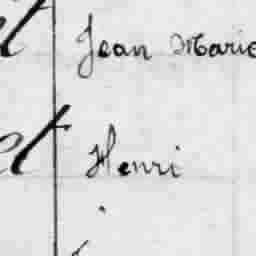 et Jean Marie
et Henri